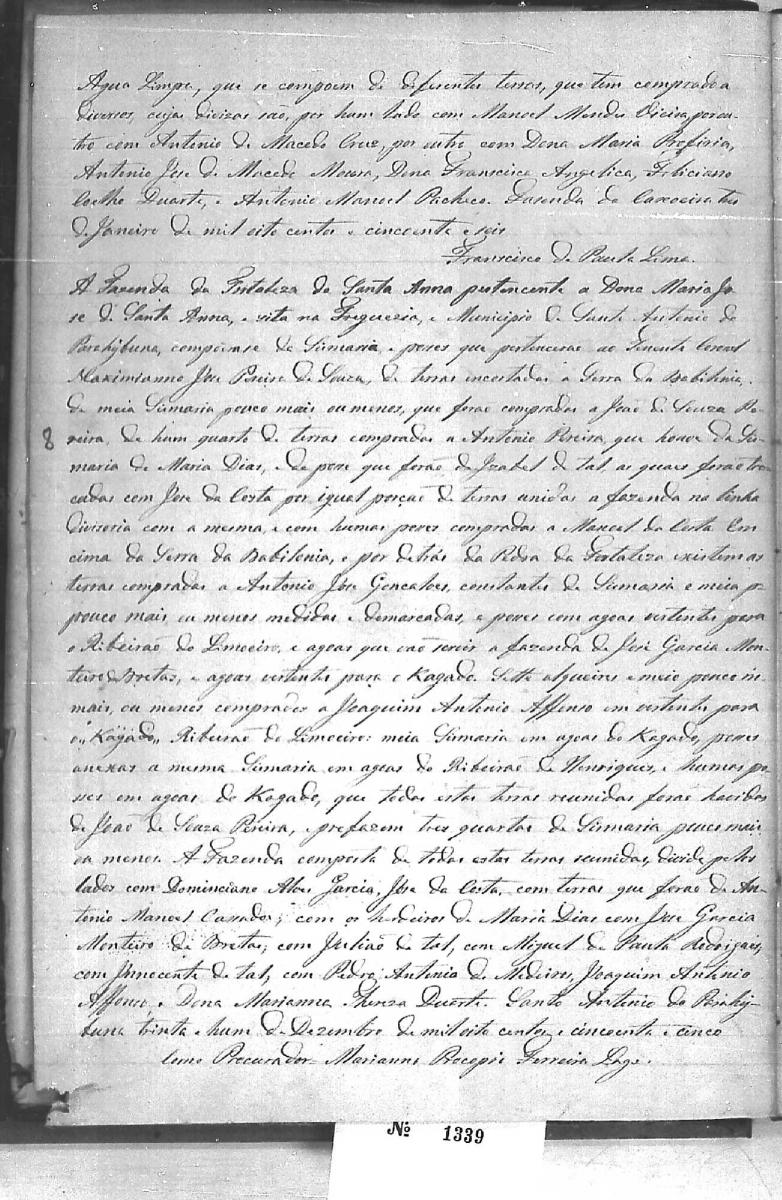 Agua Limpa, que se compoem de diferentes terras, que tem comprado a
diversos, cujas divizas são, por hum lado com Manoel Mendes Vieira, por ou-
tro com Antonio de Macedo Cruz, por outro com Dona Maria Profiria,
Antonio Jose de Macedo Moura, Dona Francisca Angelica, Feliciano
Coelho Duarte, e Antonio Manoel Pacheco. Fasenda da Caxoeira tres
de Janeiro de mil oito centos e cincoenta e seis
Francisco de Paula Lima.
A Fazenda da Fortaleza de Santa Anna pertencente a Dona Maria Jo-
se de Santa Anna, e sita na Freguezia, e Municipio de Santo Antonio do
Parahybuna, compoem-se de Sismaria, e posses que pertencerao ao Tenente Coronel
Maximianno Jose Pereira de Souza, de terras encostadas a Serra da Babilonia,
de meia Sismaria pouco mais ou menos, que forao compradas a João de Souza Pe-
8 reira, de hum quarto de terras compradas a Antonio Pereira, que houve da Sis-
maria de Maria Dias, e de posse que forão de Izabel de tal as quaes forão tro-
cadas com Jose da Costa por igual porção de terras unidas a fazenda na linha
divisoria com a mesma, e com humas posses compradas a Manoel da Costa Em
cima da Serra da Babilonia, e por detrás da Pedra da Fortaleza existem as
terras compradas a Antonio Jose Goncalves, constantes de Sismaria e meia
pouco mais ou menos medidas e demarcadas, e posses com agoas vertentes para
o Ribeirão do Limoeiro, e agoas que vão servir a fazenda de José Garcia Mon-
teiro de Bretas, e agoas vertentes para o Kagado. Sette alqueires e meio pouco
mais, ou menos comprados a Joaquim Antonio Affonso em vertentes para
o "Kagado" Ribeirão do Limoeiro: meia Sismaria em agoas do Kagado, posses
anexas a mesma Sismaria em agoas do Ribeirão de Henriques, e humas po-
sses em agoas do Kagado, que todas estas terras reunidas forao havidas
de João de Souza Pereira, e prefazem tres quartas de Sismaria pouco mais
ou menos. A Fazenda composta de todas estas terras reunidas, divide pelos
lados com Dominciano Alves Garcia, Jose da Costa, com terras que forao de An-
tonio Manoel Cassador; com os herdeiros de Maria Dias com Jose Garcia
Monteiro de Bretas; com Julião de tal, com Miguel de Paula Rodrigues,
com Innocente de tal, com Pedro Antonio de Medeiros, Joaquim Antonio
Affonso, e Dona Marianna Thereza Duarte. Santo Antonio do Parahy-
buna trinta e hum de Dezembro de mil oito centos e cincoenta e cinco
Como Procurador Marianno Procopio Ferreira Lage.
Nº 1339